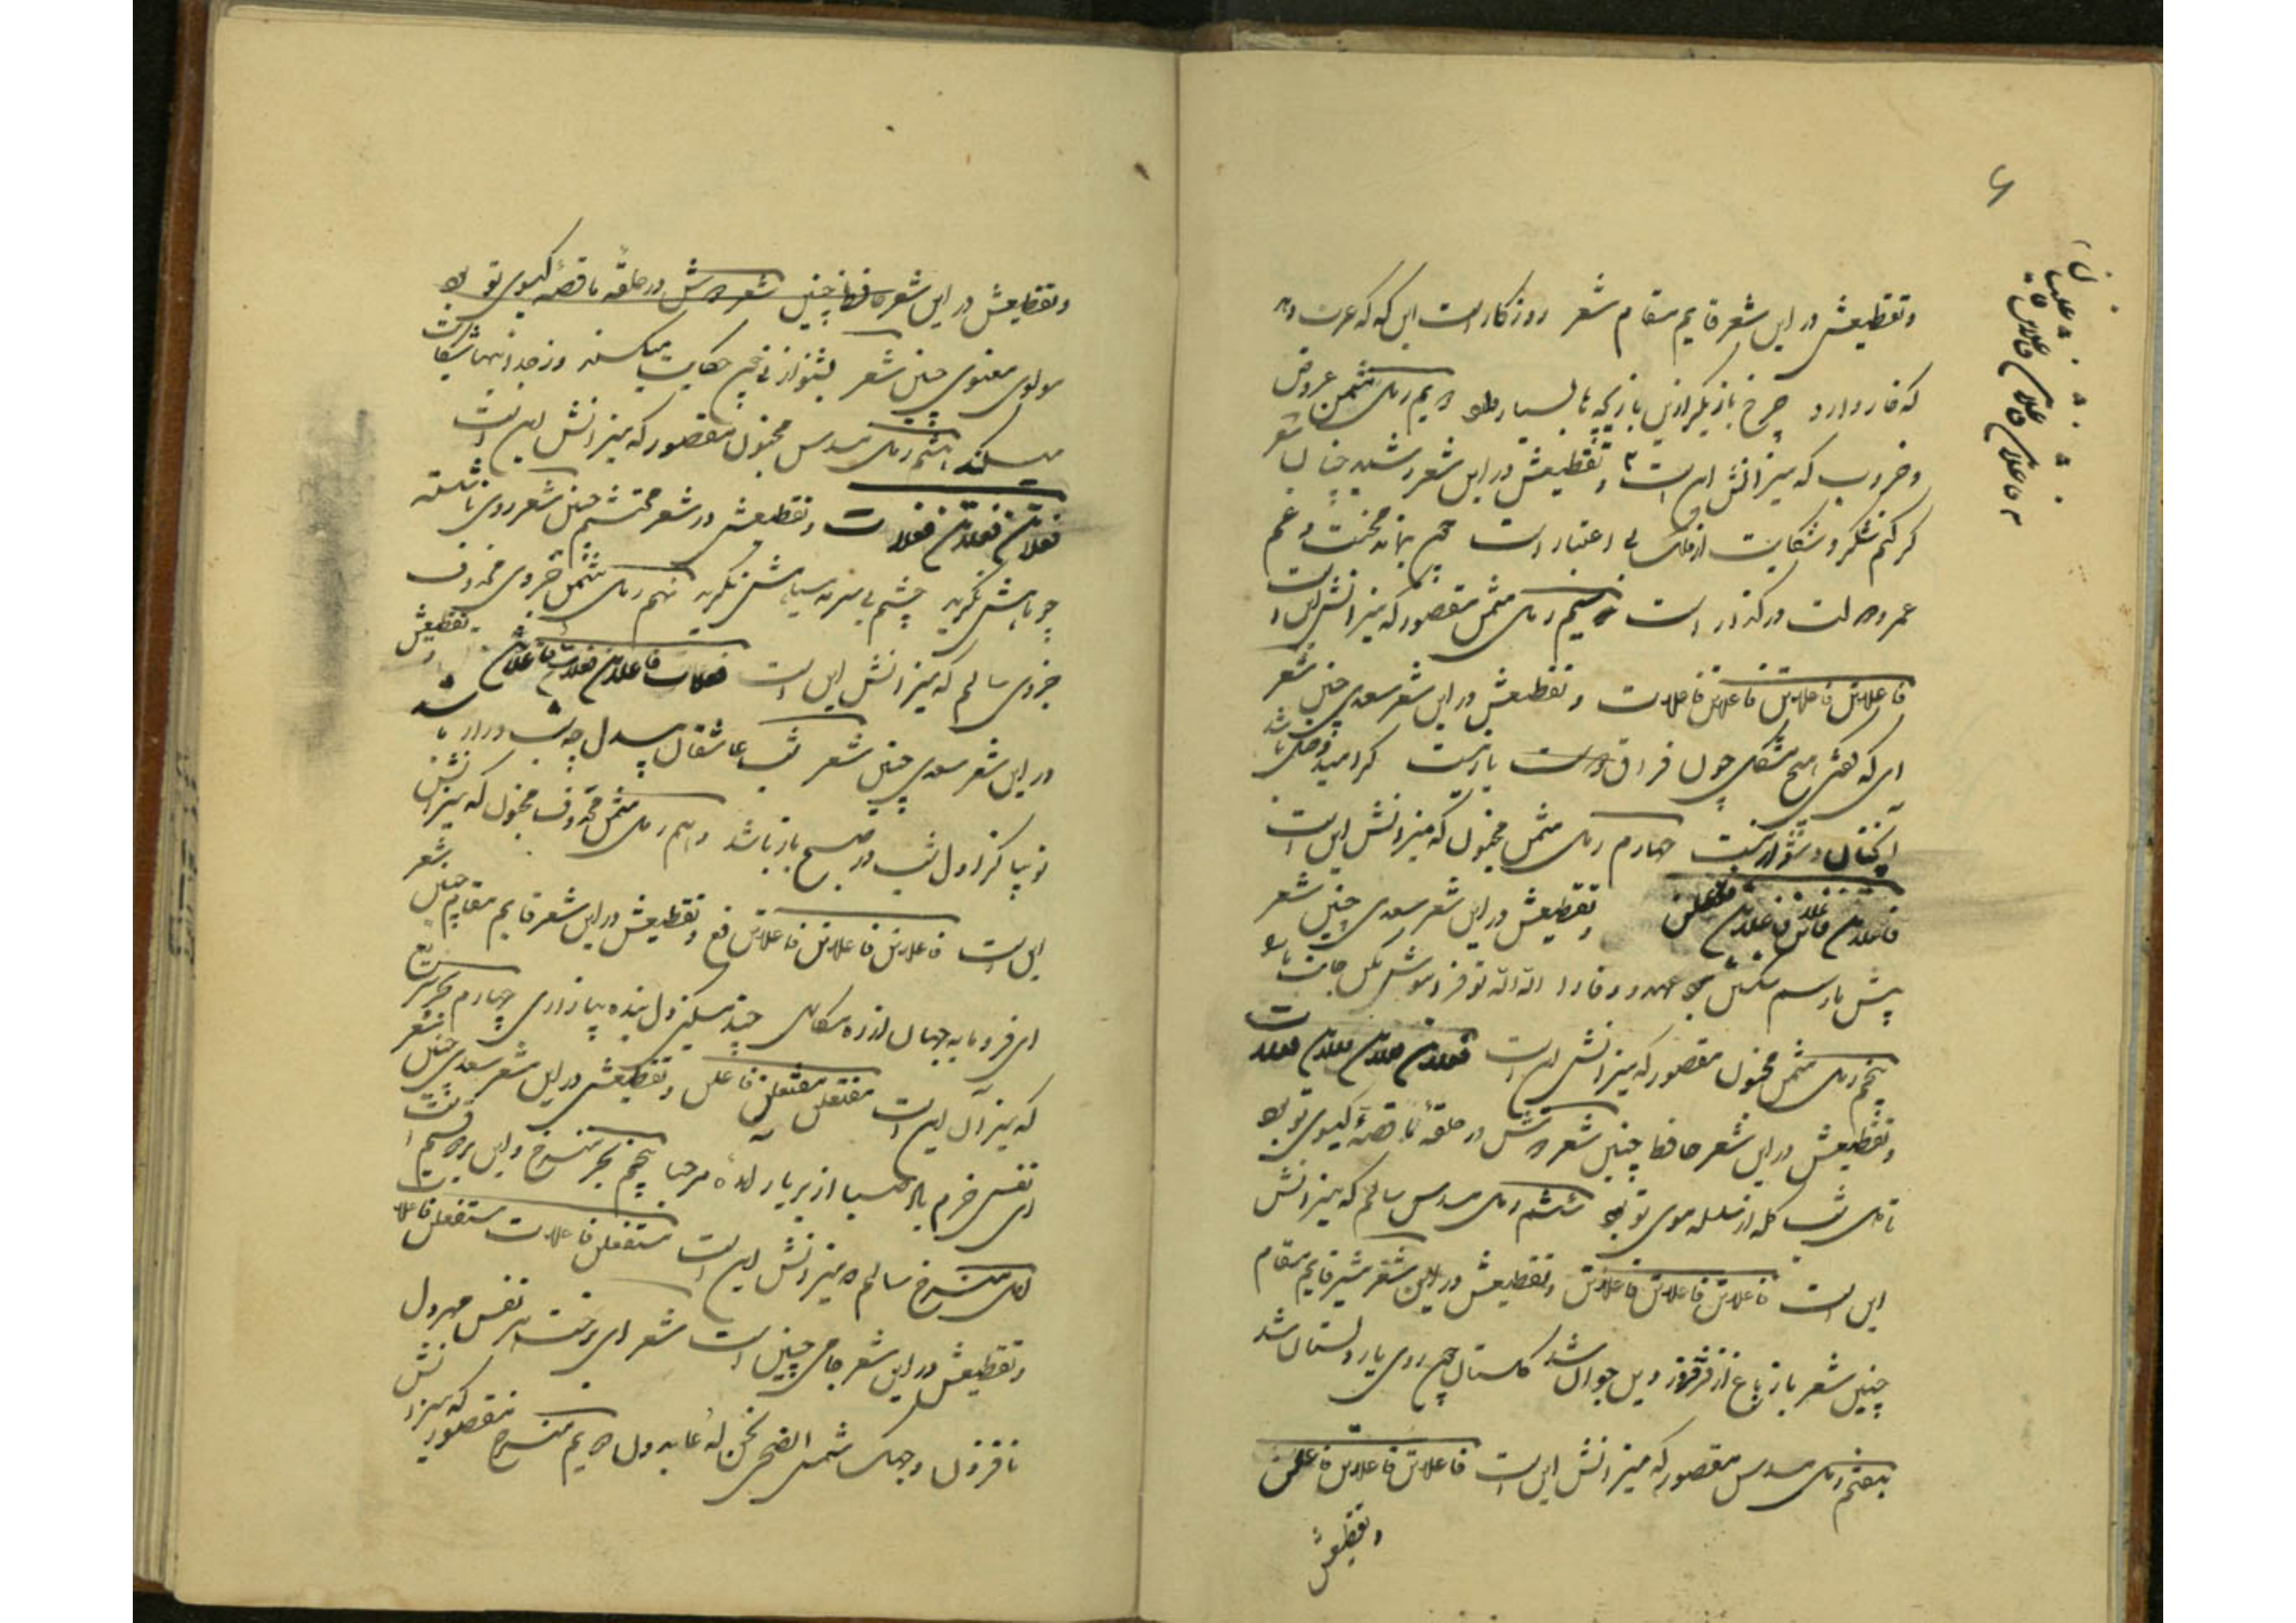 ۶
وتقطیعش در این شعر قایم مقام شعر روزکار است این که که عزت دهد
که خار دارد چرخ بازیکر ازین بازیچه‌ها بسیار دارد دویم رمل مثمن عروض
وضرب که میزانش این است وتقطیعش در این شعر رشید چنان شعر
کر کنم شکر و شکایت از فلک بی اعتبار است چون بنای محنت و غم
عمر و دولت در کذر است سیم رمل مثمن مقصور که میزانش این است
فاعلاتن فاعلاتن فاعلاتن فاعلات وتقطیعش در این شعر سعدی چنین شعر
ای که کفتی هیچ مشکل چون فراق یار نیست کر امید وصل باشد
آنچنان دشوار نیست چهارم رمل مثمن مخبون که میزانش این است
فاعلاتن فعلاتن فعلاتن فعلن وتقطیعش در این شعر سعدی چنین شعر
پیش ما رسم شکستن نبود عهد و وفا را الله الله تو فراموش مکن جانب ما را
پنجم رمل مثمن مخبون مقصور که میزانش این است فعلاتن فعلاتن فعلاتن فعلات
وتقطیعش در این شعر حافظ چنین شعر دوش در حلقهٔ ما قصهٔ کیسوی تو بود
تا دل شب کله از سلسله موی تو بود ششم رمل مسدس سالم که میزانش
این است فاعلاتن فاعلاتن فاعلاتن وتقطیعش در این شعر شیر قایم مقام
چنین شعر باز باغ از فر فروردین جوان شد کلستان چون روی یار دلستان شد
هفتم رمل مسدس مقصور که میزانش این است فاعلاتن فاعلاتن فاعلن
وتقطیعش
وتقطیعش در این شعر حافظ چنین شعر دوش در حلقه ما قصه کیسوی تو بود
مولوی معنوی چنین شعر بشنو از نی چون حکایت میکند وز جدائیها شکایت
میکند هشتم رمل مسدس مخبون مقصور که میزانش این است
فعلاتن فعلاتن فعلات وتقطیعش در شعر محتشم چنین شعر روی ناشسته
چو ماهش نکرید چشم بی سرمه سیاهش نکرید نهم رمل مثمن جزوی محذوف
جزوی سالم که میزانش این است فعلات فاعلاتن فعلات فاعلاتن وتقطیعش
در این شعر سعدی چنین شعر شب عاشقان بیدل چه شب دراز باشد
تو بیا کز اول شب در صبح باز باشد دهم رمل مثمن محذوف مخبون که میزانش
این است فاعلاتن فاعلاتن فاعلاتن فع وتقطیعش در این شعر قایم مقام چنین شعر
ای فرومایه جهان از زه سکالی چند مسکین دل بنده بیازاری چهارم بحر سریع
که میزآن این است مفتعلن مفتعلن فاعلن وتقطیعش در این شعر سعدی چنین شعر
ای نفس خرم باد صبا از بر یار آمدهٔ مرحبا پنجم بحر منسرخ و این بر دو قسم است
اول منسرخ سالم و میزانش این است مستفعلن فاعلات مستفعلن فاعلات
وتقطیعش در این شعر جامی چنین است شعر ای برخت هر نفس مهر دل
ما فزون وجهک شمس الضحی نحن له عابدون دویم منسرح مقصور که میزانش